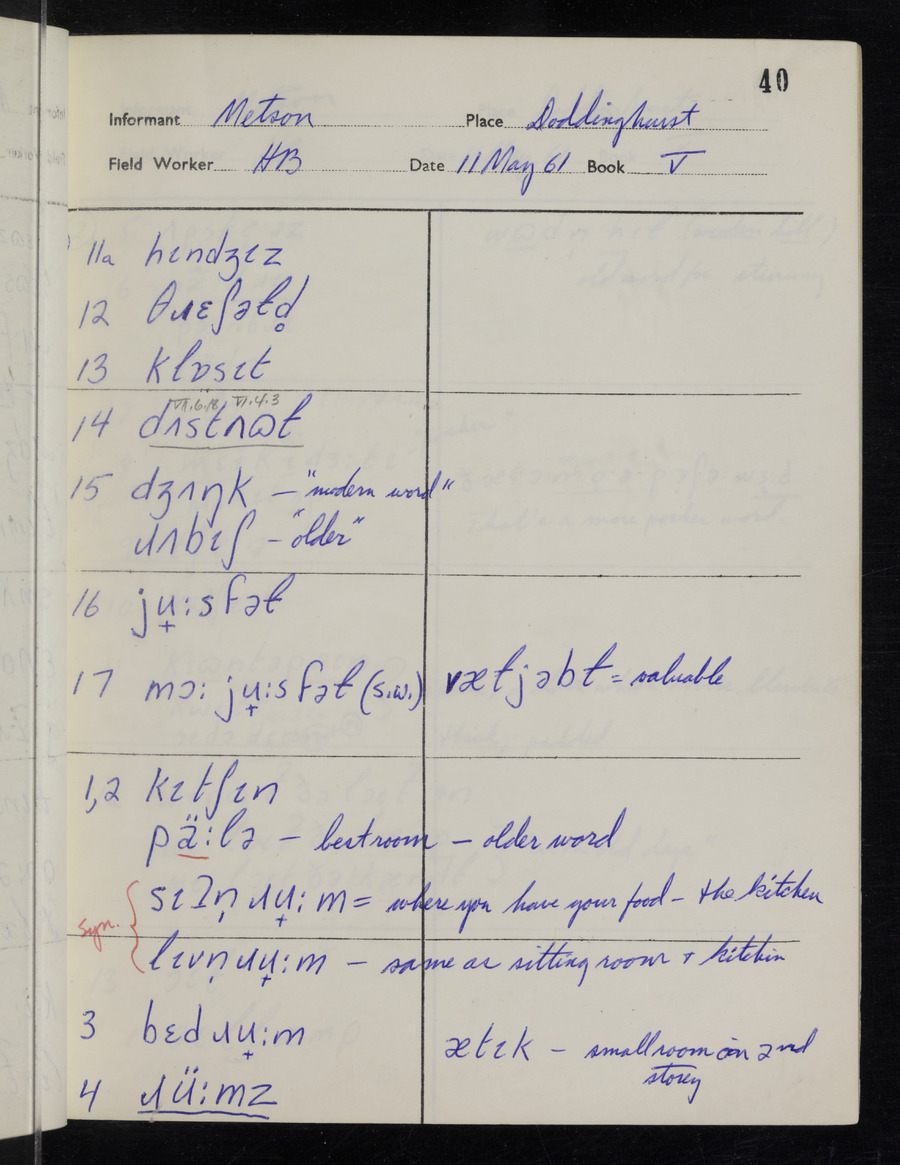 40
Informant Metson Place Doddinghurst
Field Worker HB Date 11 May 61 Book V
11a hɩndʒɩz
12 θɹɛʃəɫd̥
13 klɒsɩt
VII.6.18, VI.4.3
14 dʌstʌɷt
15 dʒʌŋk – "modern word"
ɹʌbɩʃ – "older"
16 ju̟:sfəɫ
17 mɔ: ju̟:sfəɫ (s.w.) væɫjəbɫ = valuable
1,2 kɩtʃɩn
pä:lə – best room – older word
syn.
sɩʔn̩ ɹu̟:m = where you have your food – the kitchen
lɩvn̩ ɹu̟:m – same as sitting room + kitchin
3 bɛdɹu̟:m
ætɩk – small room on 2nd
storey
4 ɹü:mz